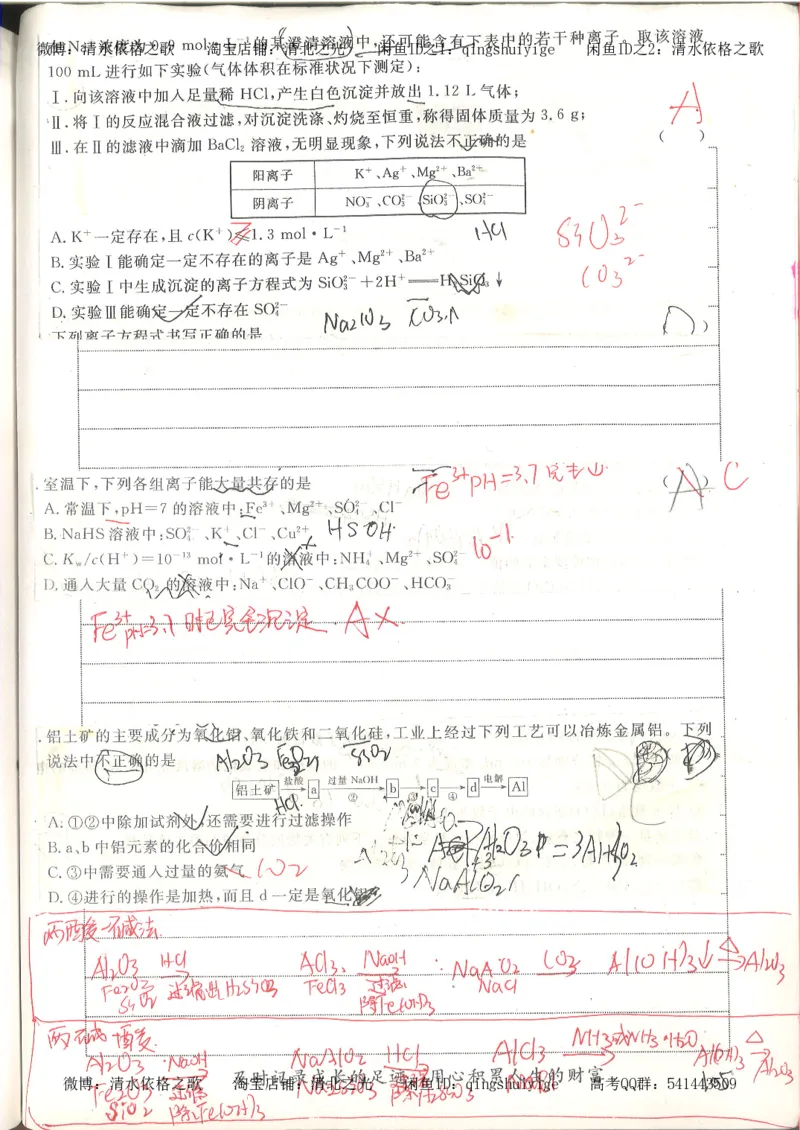 微博：清水依格之歌 淘宝店铺：清北之光 闲鱼ID之1：qingshuiyige 闲鱼ID之2：清水依格之歌
的某澄清溶液中,还可能含有下表中的若干种离子。取该溶液
100 mL 进行如下实验(气体体积在标准状况下测定):
Ⅰ.向该溶液中加入足量稀 HCl,产生白色沉淀并放出 1.12 L 气体;
Ⅱ.将Ⅰ的反应混合液过滤,对沉淀洗涤、灼烧至恒重,称得固体质量为 3.6 g;
A
Ⅲ.在Ⅱ的滤液中滴加 BaCl₂ 溶液,无明显现象,下列说法不正确的是 ( )
阳离子 K⁺、Ag⁺、Mg²⁺、Ba²⁺
阴离子 NO₃⁻、CO₃²⁻、SiO₃²⁻、SO₄²⁻
A. K⁺一定存在,且 c(K⁺)≤1.3 mol·L⁻¹
HCl
SiO₃²⁻
B. 实验Ⅰ能确定一定不存在的离子是 Ag⁺、Mg²⁺、Ba²⁺
CO₃²⁻
C. 实验Ⅰ中生成沉淀的离子方程式为 SiO₃²⁻+2H⁺══H₂SiO₃↓
D. 实验Ⅲ能确定一定不存在 SO₄²⁻
下列离子方程式书写正确的是
.室温下,下列各组离子能大量共存的是
Fe³⁺ pH=3.7完全
(A) C
A. 常温下,pH=7 的溶液中:Fe³⁺、Mg²⁺、SO₄²⁻、Cl⁻
B. NaHS 溶液中:SO₄²⁻、K⁺、Cl⁻、Cu²⁺
C. Kw/c(H⁺)=10⁻¹³ mol·L⁻¹的溶液中:NH₄⁺、Mg²⁺、SO₄²⁻
10⁻¹
D. 通入大量 CO₂ 的溶液中:Na⁺、ClO⁻、CH₃COO⁻、HCO₃⁻
Fe³⁺ pH=3.7时已完全沉淀. A×
.铝土矿的主要成分为氧化铝、氧化铁和二氧化硅,工业上经过下列工艺可以冶炼金属铝。下列
说法中不正确的是
Al₂O₃ SiO₂
铝土矿 盐酸 ① a 过量 NaOH ② b ③ c ④ d 电解 Al
HCl
A. ①②中除加试剂外,还需要进行过滤操作
B. a、b 中铝元素的化合价相同
C. ③中需要通入过量的氨气
CO₂
NaAlO₂
D. ④进行的操作是加热,而且 d 一定是氧化铝
两酸一碱法
Al₂O₃ HCl AlCl₃ NaOH NaAlO₂ CO₂ Al(OH)₃↓ △ Al₂O₃
Fe₂O₃ FeCl₃ 过滤 NaCl
SiO₂ 除Fe(OH)₃
两碱一酸
Al₂O₃ NaOH NaAlO₂ HCl AlCl₃ NH₃或NH₃·H₂O Al(OH)₃ △ Al₂O₃
及时记录成长的足迹 用心积累人生的财富
微博：清水依格之歌 淘宝店铺：清北之光 闲鱼ID：qingshuiyige 高考QQ群：541443509
Fe₂O₃ 过滤
SiO₂ 除Fe(OH)₃